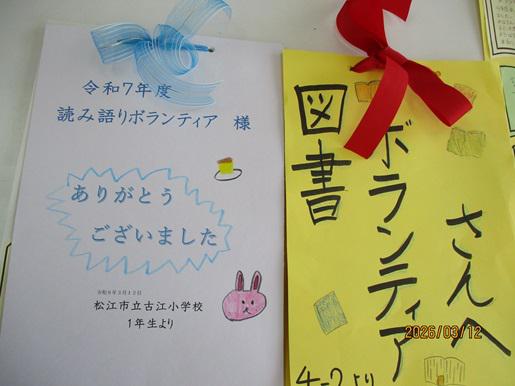 令和7年度
読み語りボランティア 様
ありがとう
ございました
令和8年3月12日
松江市立古江小学校
1年生より
図書
ボランティア
さんへ
4-2より
2026/03/12